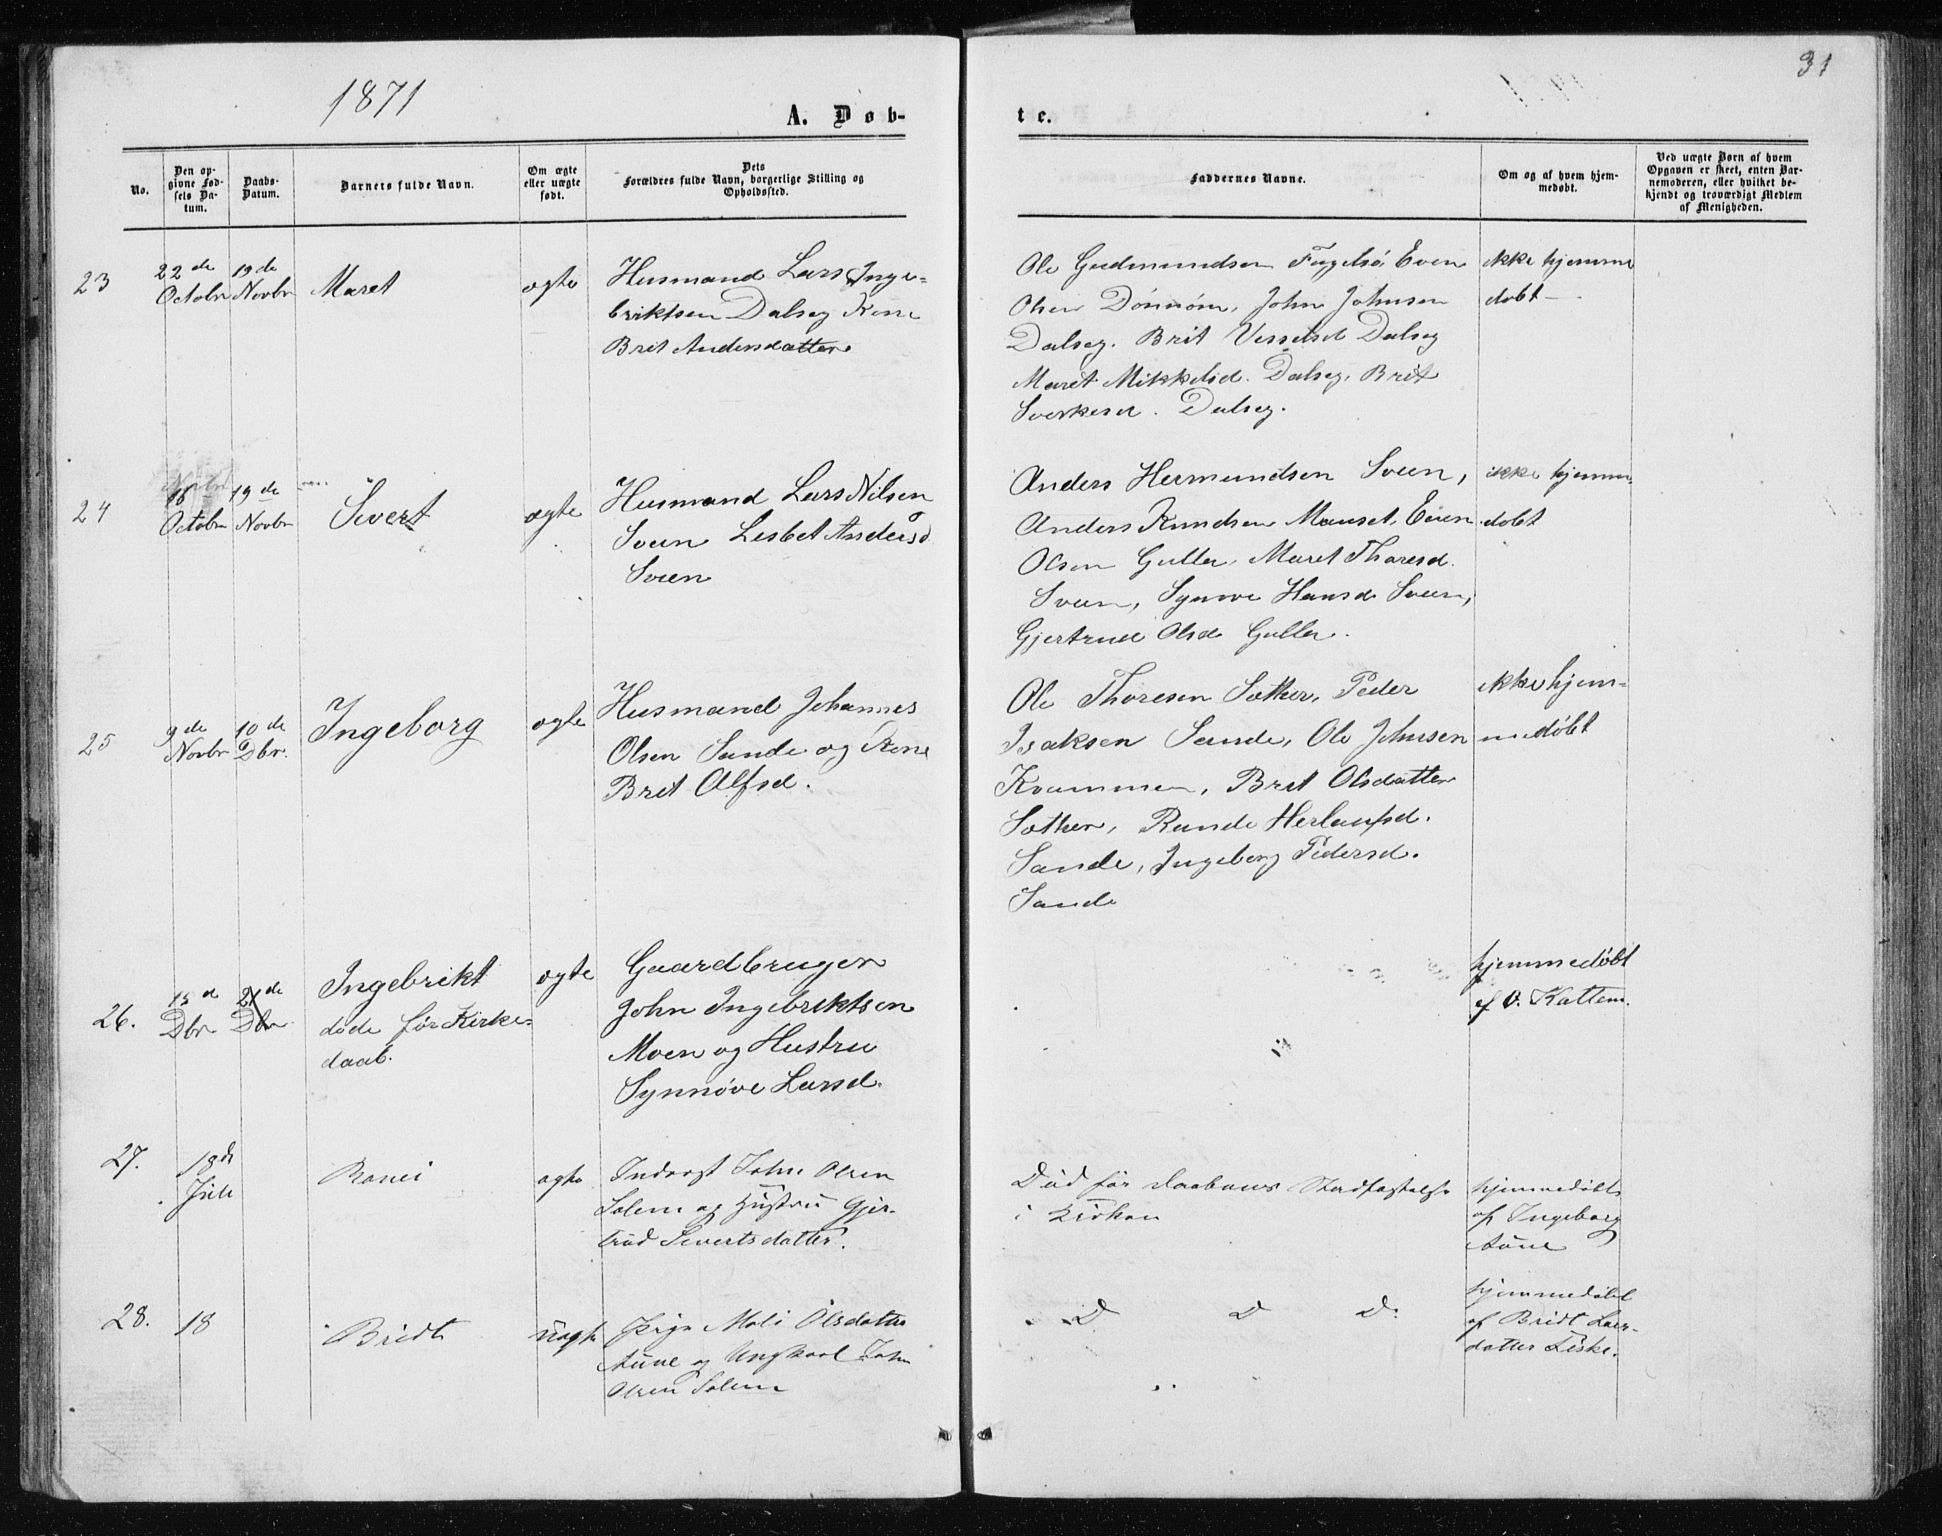 1871
31
A. Døb-
te.
No.
Den op-
givne Fød-
sels Da-
tum.
Daabs-
Datum.
Barnets fulde Navn.
Om ægte
eller uægte
født.
Dets
Forældres fulde Navn, borgerlige Stilling og
Opholdssted.
Faddernes Navne.
Om og af hvem hjem-
medøbt.
Ved uægte Børn af hvem
Opgaven er skeet, enten Bar-
nemoderen, eller hvilket be-
kjendt og troværdigt Medlem
af Menigheden.
23
22de
Octobr
19de
Novbr
Maret
ægte
Husmand Lars Inge-
briktsen Dalseg Kone
Brit Andersdatter
Ole Gudmundsen Fugelsø, Even
Olsen Dønnøm, John Johnsen
Dalseg. Brit Vesselsd Dalseg
Maret Mikkelsd. Dalseg, Brit
Sverkesd. Dalseg.
ikke hjemme
døbt
24
16
Octobr
19de
Novbr
Sivert
ægte
Husmand Lars Nilsen
Sveen Lisbet Andersd
Sveen
Anders Hermundsen Sveen,
Anders Knudsen Mauset, Even
Olsen Guller, Maret Thoresd.
Sveen, Synnve Hansd Sveen,
Gjertrud Olsd Guller.
ikke hjemme-
døbt
25
9de
Novbr
10de
Dbr.
Ingeborg
ægte
Husmand Johannes
Olsen Sande og Kone
Brit Olfsd.
Ole Thoresen Sæther, Peder
Isaksen Sande, Ole Johnsen
Kvammen, Brit Olsdatter
Sæther, Rande Herlaufsd.
Sande, Ingeborg Pedersd.
Sande
ikke hjem-
medøbt
26.
15d
Dbr
21de
Dbr
Ingebrikt
døde før Kirke-
daab.
ægte
Gaardbruger
John Ingebriktsen
Moen og Hustru
Synnøve Larsd.
hjemmedøbt
af O. Kattem.
27.
18de
Juli
Ranei
ægte
Inderst John Olsen
Solem og Hustru Gjer-
trud Sivertsdatter.
Død før Daabens Stadfæstelse
i Kirken
hjemmedøbt
af Ingeborg
Aune
28.
18
Bridt
uægte
Pige Mali Olsdatter
Aune og Ungkarl John
Olsen Solem
D D D.
hjemmedøbt
af Bridt Lars-
datter Liske.